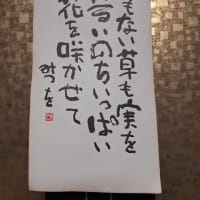 もない草も実を
るいのちいっぱい
花を咲かせて
みつを